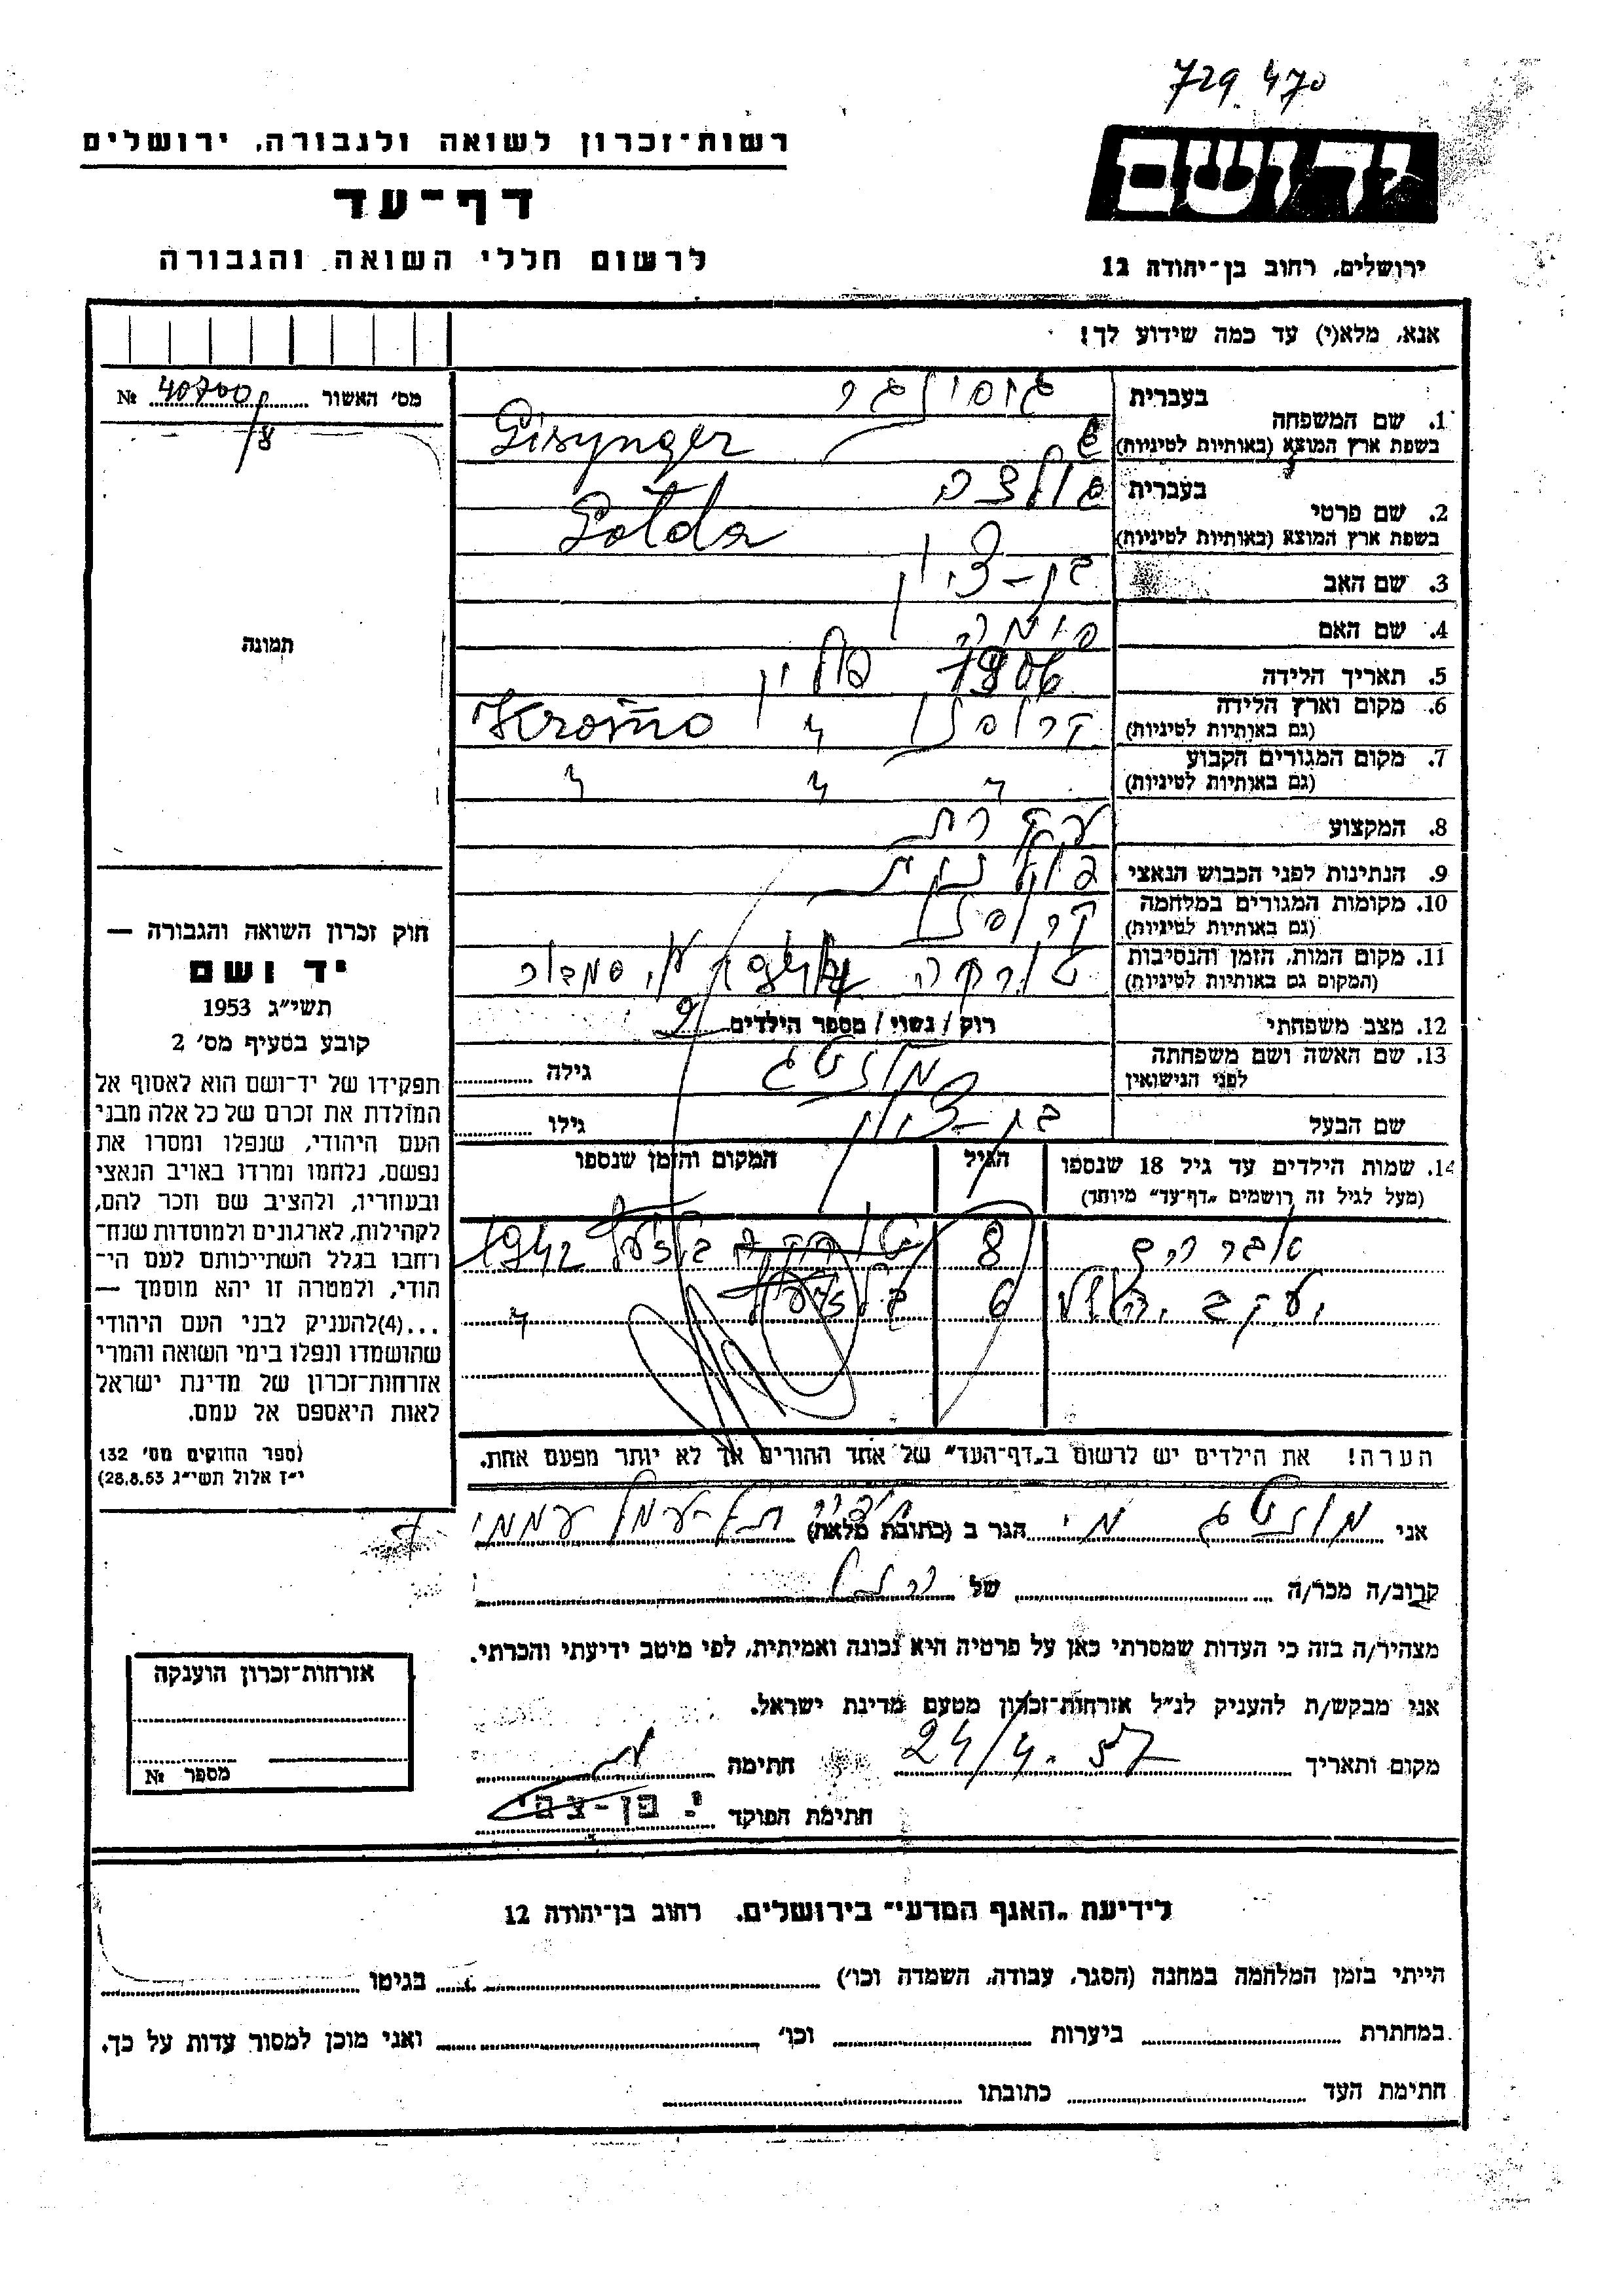 729.470
רשות־זכרון לשואה ולגבורה, ירושלים
דף־עד
לרשום חללי השואה והגבורה
יד ושם
ירושלים, רחוב בן־יהודה 12
אנא, מלא(י) עד כמה שידוע לך!
מס' האשור 40700/8 №
תמונה
1. שם המשפחה בעברית
בשפת ארץ המוצא (באותיות לטיניות) Gisynger
2. שם פרטי בעברית גולדה
בשפת ארץ המוצא (באותיות לטיניות) Golda
3. שם האב בן-ציון
4. שם האם
5. תאריך הלידה 1906 פולין
6. מקום וארץ הלידה
(גם באותיות לטיניות) קרוסנו " Krosno
7. מקום המגורים הקבוע
(גם באותיות לטיניות) " " "
8. המקצוע עקרת
9. הנתינות לפני הכבוש הנאצי פולנית
10. מקומות המגורים במלחמה
(גם באותיות לטיניות) קרוסנו
11. מקום המות, הזמן והנסיבות
(המקום גם באותיות לטיניות) טורקה על יד סמבור
12. מצב משפחתי רוק / נשוי / מספר הילדים 2
13. שם האשה ושם משפחתה
לפני הנישואין גילה
שם הבעל בן-ציון גילו
14. שמות הילדים עד גיל 18 שנספו
(מעל לגיל זה רושמים „דף־עד" מיוחד) הגיל המקום והזמן שנספו
אברהם 8 טורקה בלזץ 1942
יעקב יהושע 6 בלזץ "
הערה! את הילדים יש לרשום ב„דף־העד" של אחד ההורים אך לא יותר מפעם אחת.
חוק זכרון השואה והגבורה —
יד ושם
תשי"ג 1953
קובע בסעיף מס' 2
תפקידו של יד־ושם הוא לאסוף אל
המולדת את זכרם של כל אלה מבני
העם היהודי, שנפלו ומסרו את
נפשם, נלחמו ומרדו באויב הנאצי
ובעוזריו, ולהציב שם וזכר להם,
לקהילות, לארגונים ולמוסדות שנח־
רחבו בגלל השתייכותם לעם הי־
הודי, ולמטרה זו יהא מוסמך —
...(4)להעניק לבני העם היהודי
שהושמדו ונפלו בימי השואה והמרי
אזרחות־זכרון של מדינת ישראל
לאות היאספם אל עמם.
(ספר החוקים מס' 132
י"ז אלול תשי"ג 28.8.53)
אני הגר ב (כתובת מלאה) חיפה תל-עמל עממי 7
קרוב/ה מכר/ה של
מצהיר/ה בזה כי העדות שמסרתי כאן על פרטיה היא נכונה ואמיתית, לפי מיטב ידיעתי והכרתי.
אני מבקש/ת להעניק לנ"ל אזרחות־זכרון מטעם מדינת ישראל.
מקום ותאריך 24/4.57 חתימה
חתימת הפוקד י. בן-צבי
אזרחות־זכרון הוענקה
מספר №
לידיעת „האגף המדעי" בירושלים, רחוב בן־יהודה 12
הייתי בזמן המלחמה במחנה (הסגר, עבודה, השמדה וכו') בגיטו
במחתרת ביערות וכו' ואני מוכן למסור עדות על כך.
חתימת העד כתובתו